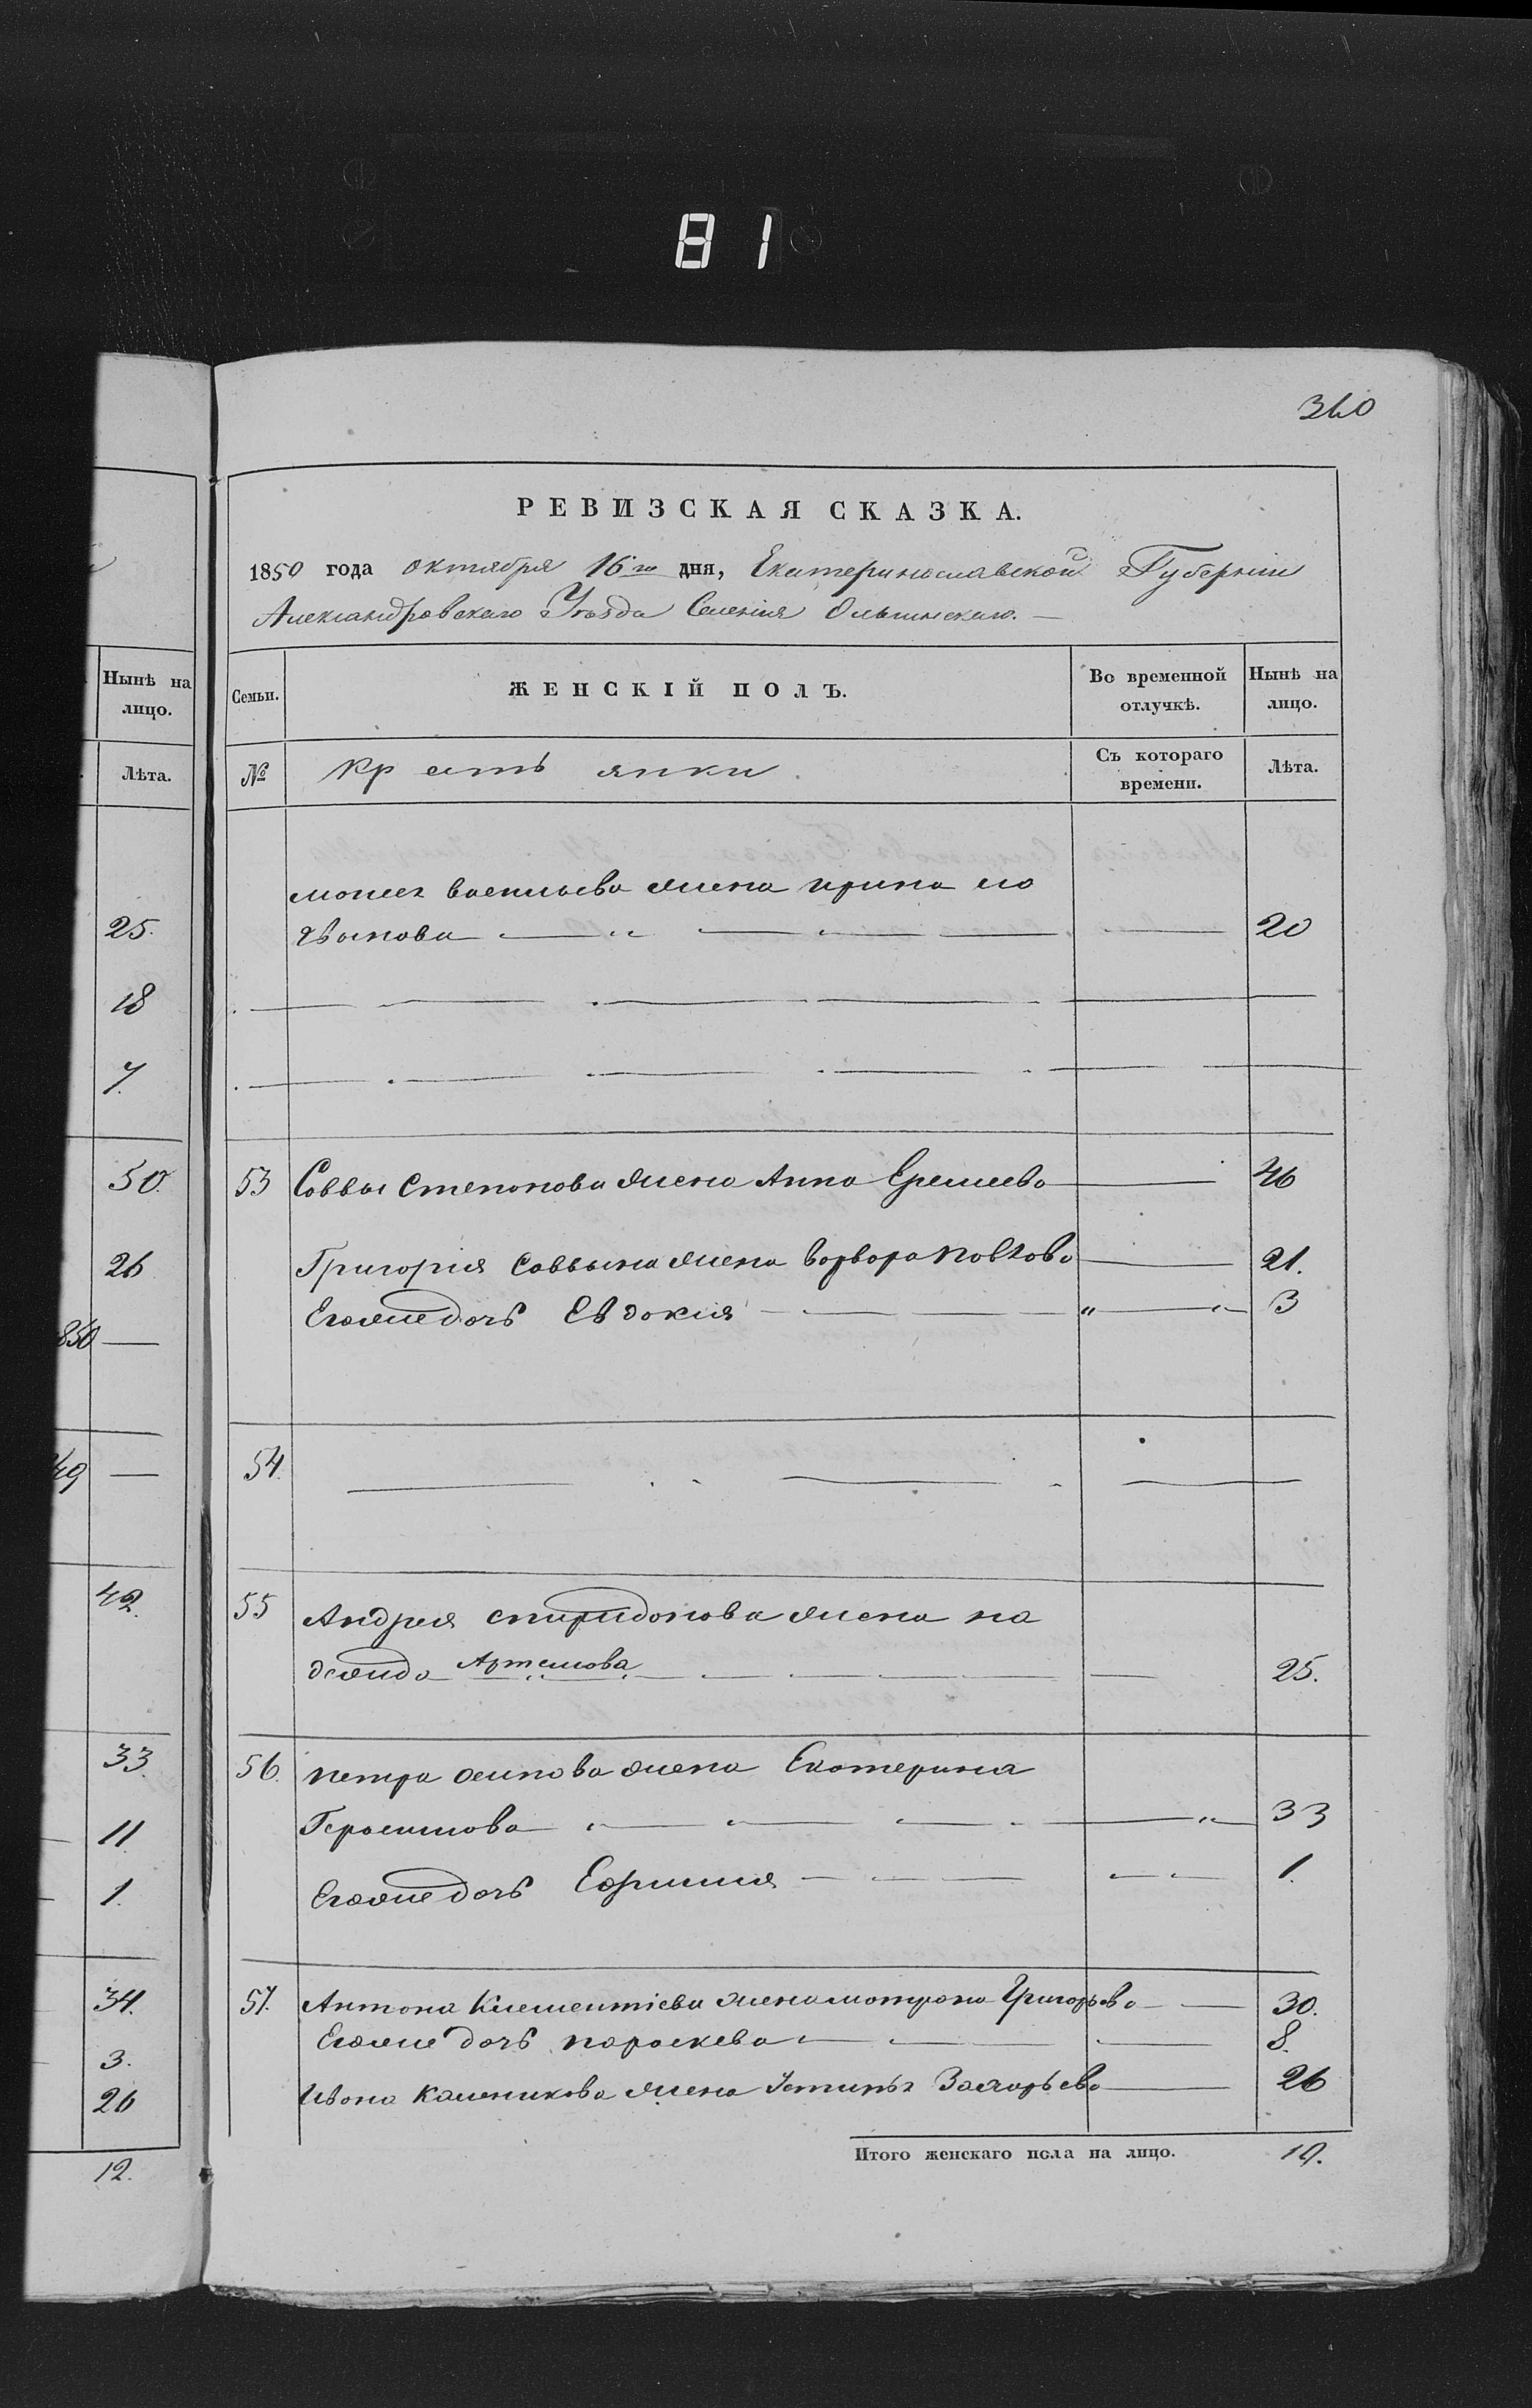 81
360
РЕВИЗСКАЯ СКАЗКА.
1850 года октября 16го дня, Екатеринославской Губернии
Александровскаго Уѣзда Селенія Ольгинскаго.
Нынѣ на лицо.
Лѣта.
25.
18
7.
50.
26
850
49
42.
33.
11.
1.
34.
3.
26
12.
Семьи. ЖЕНСКІЙ ПОЛЪ. Во временной отлучкѣ. Нынѣ на лицо.
№ Крестьянки Съ котораго времени. Лѣта.
васильева жена ирина ло
гвынова 20
53 Саввы Степанова жена Анна Еремеева 46
Григория Саввына жена варвара 21.
Егоже дочь Евдокия 3
54.
55 Андрея спиридонова жена на
дежда Артемова 25.
56. петра осипова жена Екатерина
Герасимова 33
Егоже дочь 1.
57. Антона Клементіева жена матрона Григорьева 30.
Егоже дочь параскева 8.
Ивана каленикова жена Захарьева 26
Итого женскаго пола на лицо. 10.